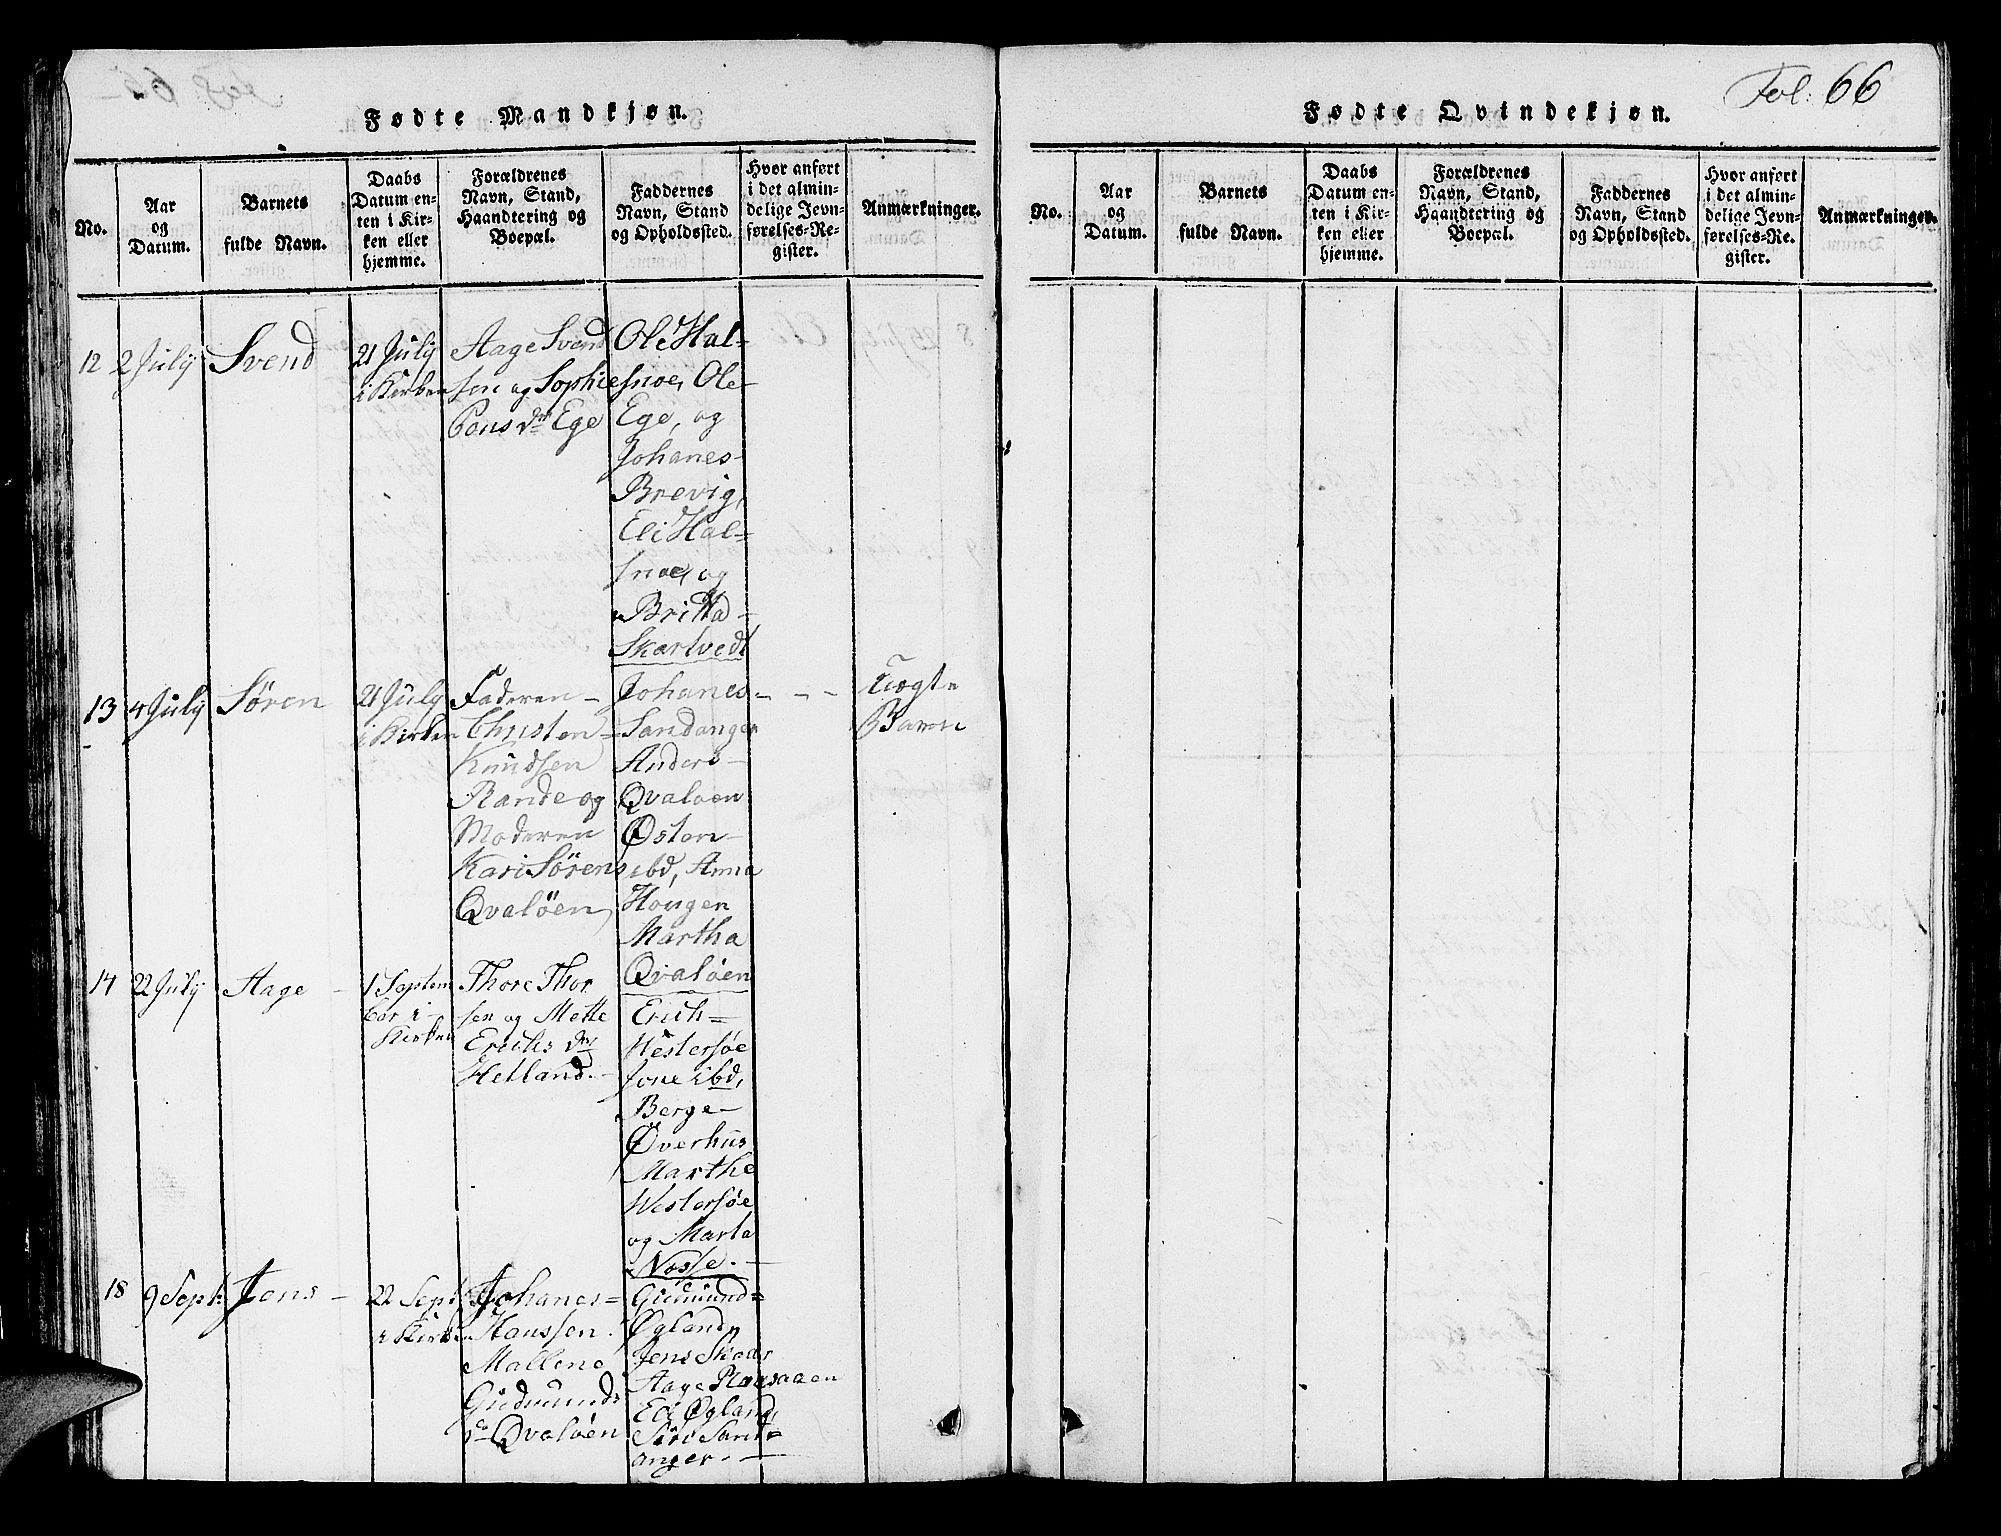 Fol: 66
Fødte Mandkjøn.
No.
Aar
og
Datum.
Barnets
fulde Navn.
Daabs
Datum en-
ten i Kir-
ken eller
hjemme.
Forældrenes
Navn, Stand,
Haandtering og
Boepæl.
Faddernes
Navn, Stand
og Opholdssted.
Hvor anført
i det almin-
delige Jevn-
førelses-Re-
gister.
Anmærkninger.
12
2 July
Svend
21 July
i Kirken
Aage Svend
sen og Sophie
Pons dtr Ege
Ole Hal=
snoe, Ole
Ege, og
Johanes
Brevig,
Eli Hal=
snoe, og
Britta
Skartvedt
13
4 July
Søren
21 July
i Kirken
Faderen
Christen
Knudsen
Rande og
Moderen
Kari Sørens
Qvaløen
Johanes
Sandanger
Anders
Qvaløen
Østen
ibd, Anna
Hougen
Martha
Qvaløen
Uægte
Barn
14
22 July
Aage
1 Septem
ber i
Kirken
Thore Thor
sen og Mette
Erichs dtr
Hetland.
Erich
Westersøe
Jone ibd,
Berge
Øverhus
Marthe
Westersøe
og Marta
Nosse.
18
9 Sept:
Jens
22 Sept
i Kirken
Johanes
Hanssen
Mallene
Gudmunds
dr Qvaløen
Gudmund=
Øgland,
Jens Skaar
Aage Raasaaen
Eli Øgland,
Siri Sand=
anger.
Fødte Qvindekjøn.
No.
Aar
og
Datum.
Barnets
fulde Navn.
Daabs
Datum en-
ten i Kir-
ken eller
hjemme.
Forældrenes
Navn, Stand,
Haandtering og
Boepæl.
Faddernes
Navn, Stand
og Opholdssted.
Hvor anført
i det almin-
delige Jevn-
førelses-Re-
gister.
Anmærkninger.